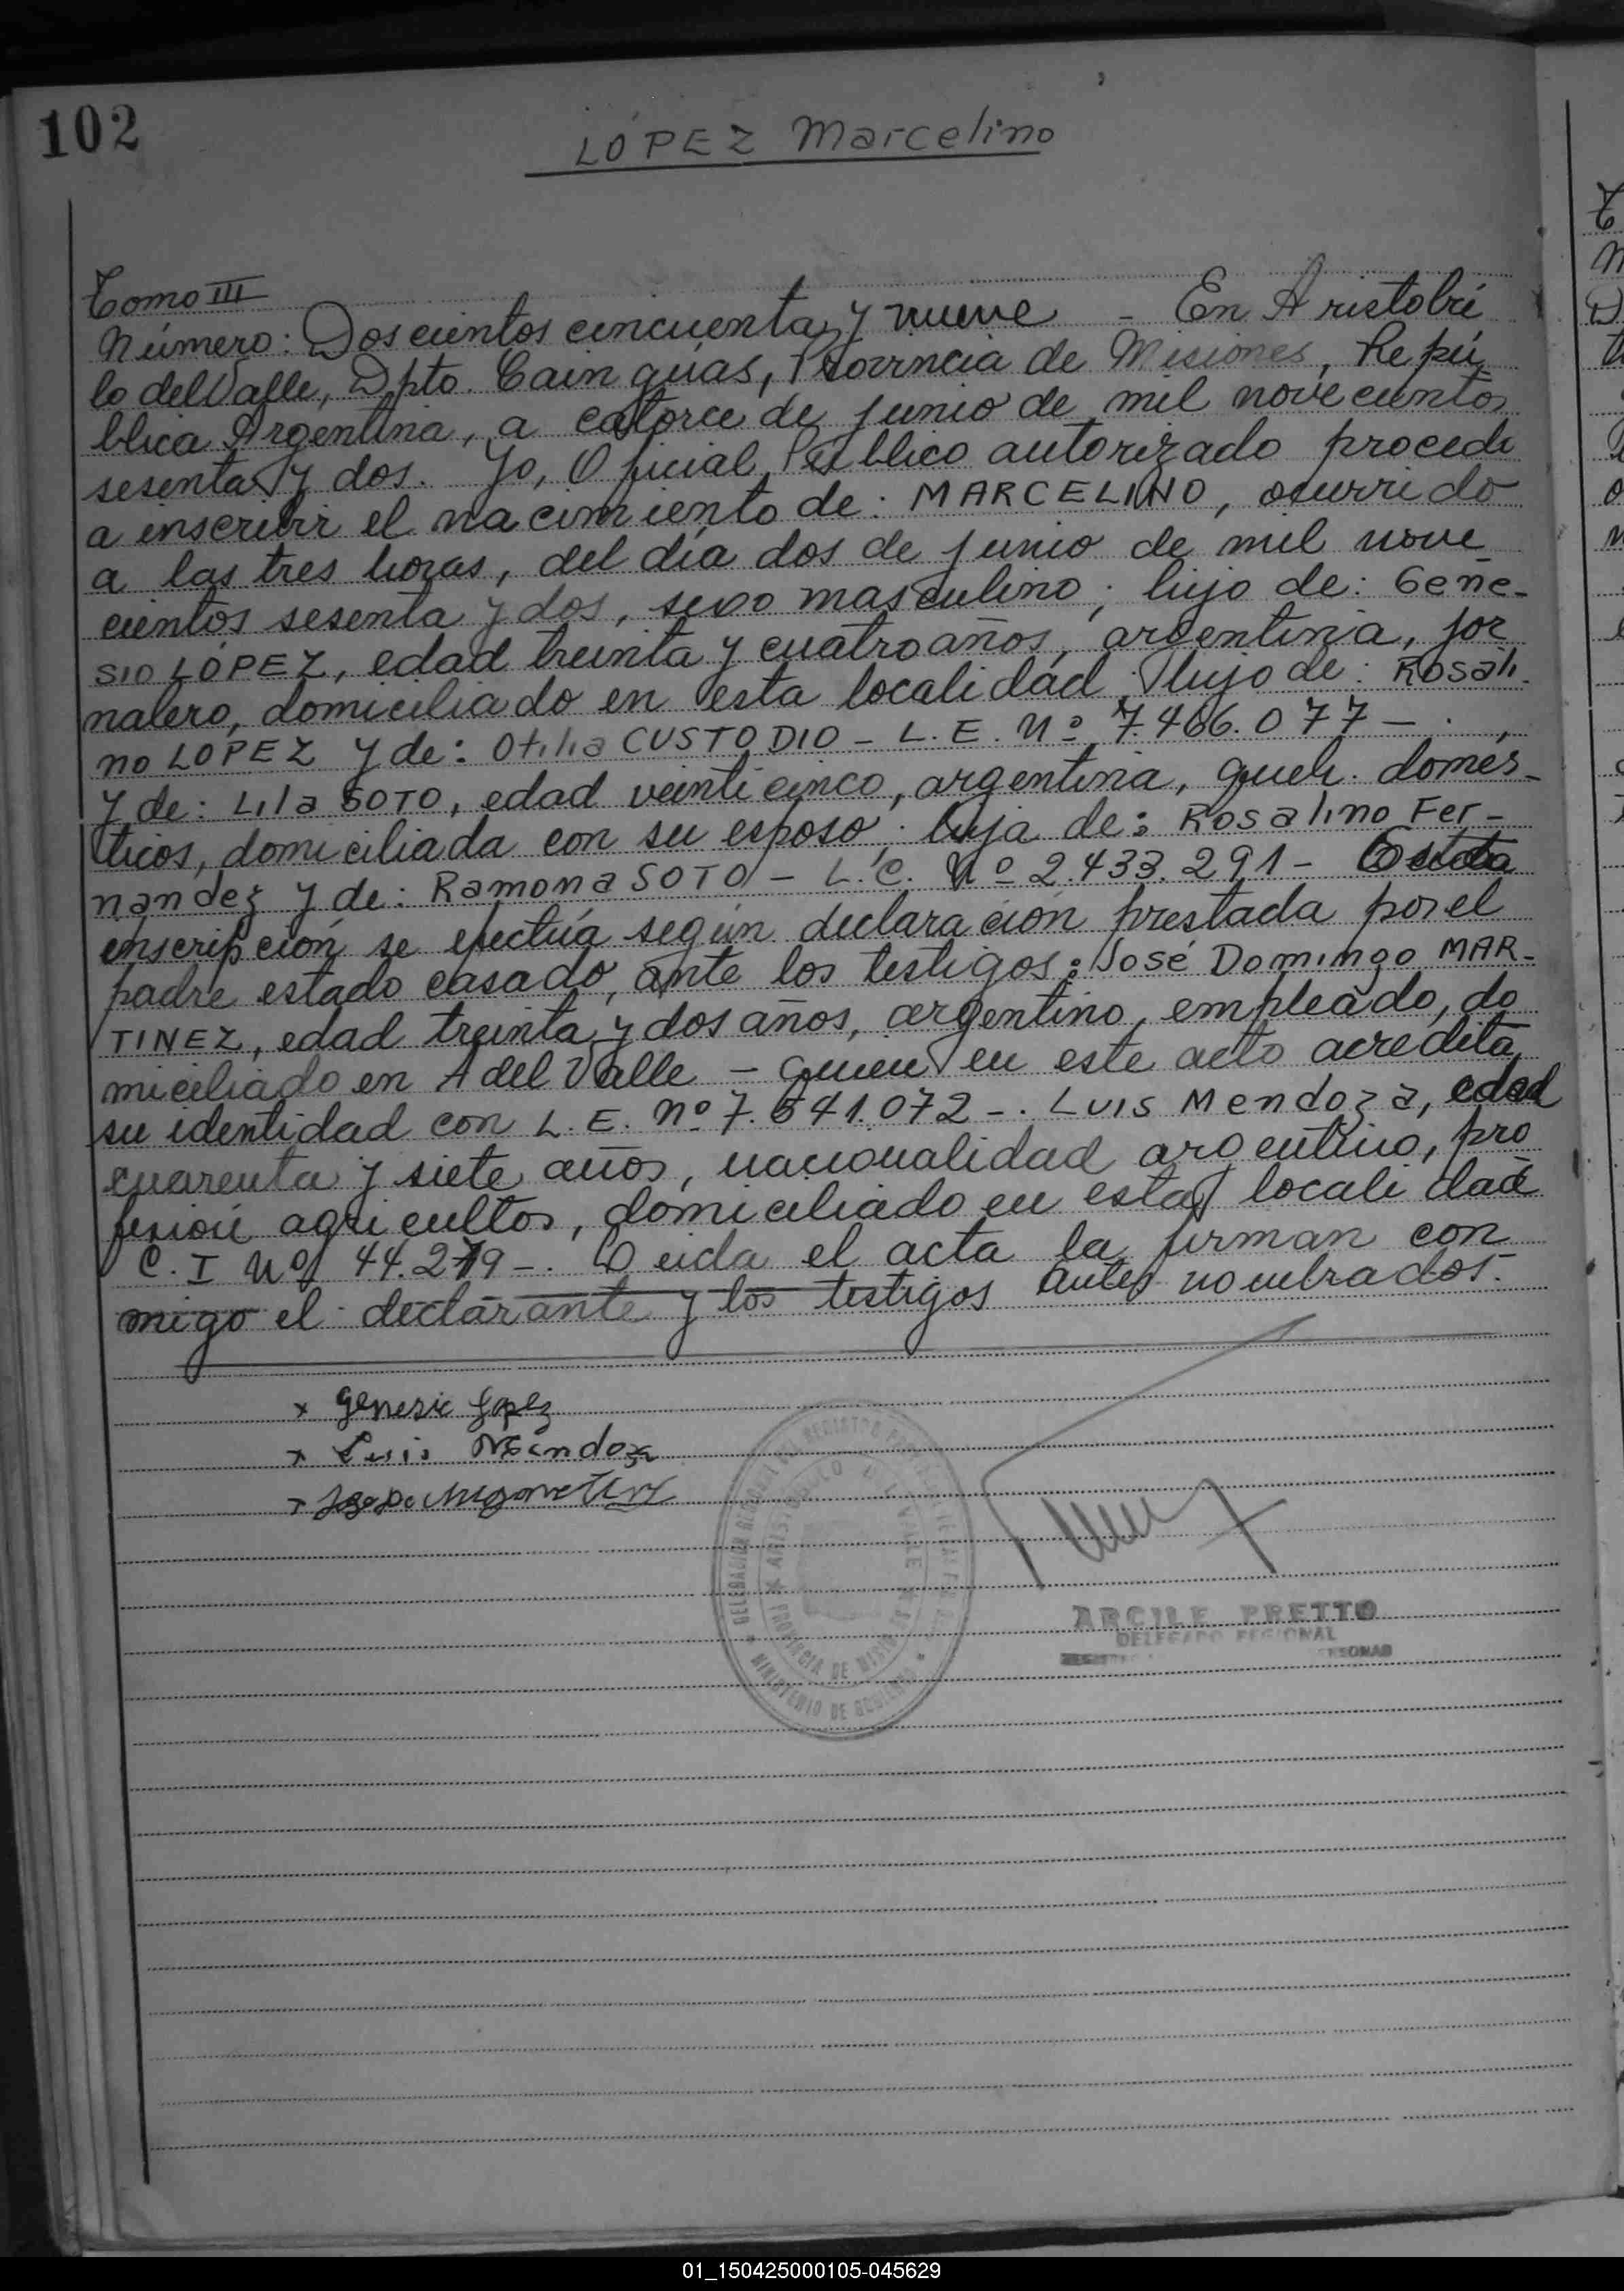 102
LÓPEZ Marcelino
Tomo III
Número: Doscientos cincuenta y nueve - En Aristobú
lo del Valle, Dpto. Cainguás, Provincia de Misiones, Repú
blica Argentina, a catorce de junio de mil novecientos
sesenta y dos. Yo, Oficial Público autorizado procedi
a inscribir el nacimiento de: MARCELINO, ocurrido
a las tres horas, del día dos de junio de mil nove
cientos sesenta y dos, sexo masculino; hijo de: Gene-
sio LÓPEZ, edad treinta y cuatro años, argentina, jor
nalero, domiciliado en esta localidad; hijo de: Rosali-
no LOPEZ y de: Otilia CUSTODIO - L. E. Nº 7.466.077 -
y de: Lila SOTO, edad veinticinco, argentina, queh. domés-
ticos, domiciliada con su esposo; hija de: Rosalino Fer-
nandez y de: Ramona SOTO - L. C. Nº 2.433.291 - Esta
inscripción se efectúa según declaración prestada por el
padre estado casado, ante los testigos: José Domingo MAR-
TINEZ, edad treinta y dos años, argentino, empleado, do
miciliado en A del Valle - quien en este acto acredita
su identidad con L. E. Nº 7.541.072 -. Luis Mendoza, edad
cuarenta y siete años, nacionalidad argentino, pro
fesión agricultor, domiciliado en esta localidad
C. I Nº 44.279 -. Leida el acta la firman con
migo el declarante y los testigos antes nombrados.
x Genesio Lopez
x Luis Mendoza
x
ARCILE PRETTO
DELEGADO REGIONAL
PERSONAS
ARISTOBULO DEL VALLE
PROVINCIA DE MISIONES
MINISTERIO DE GOBIERNO
01_150425000105-045629